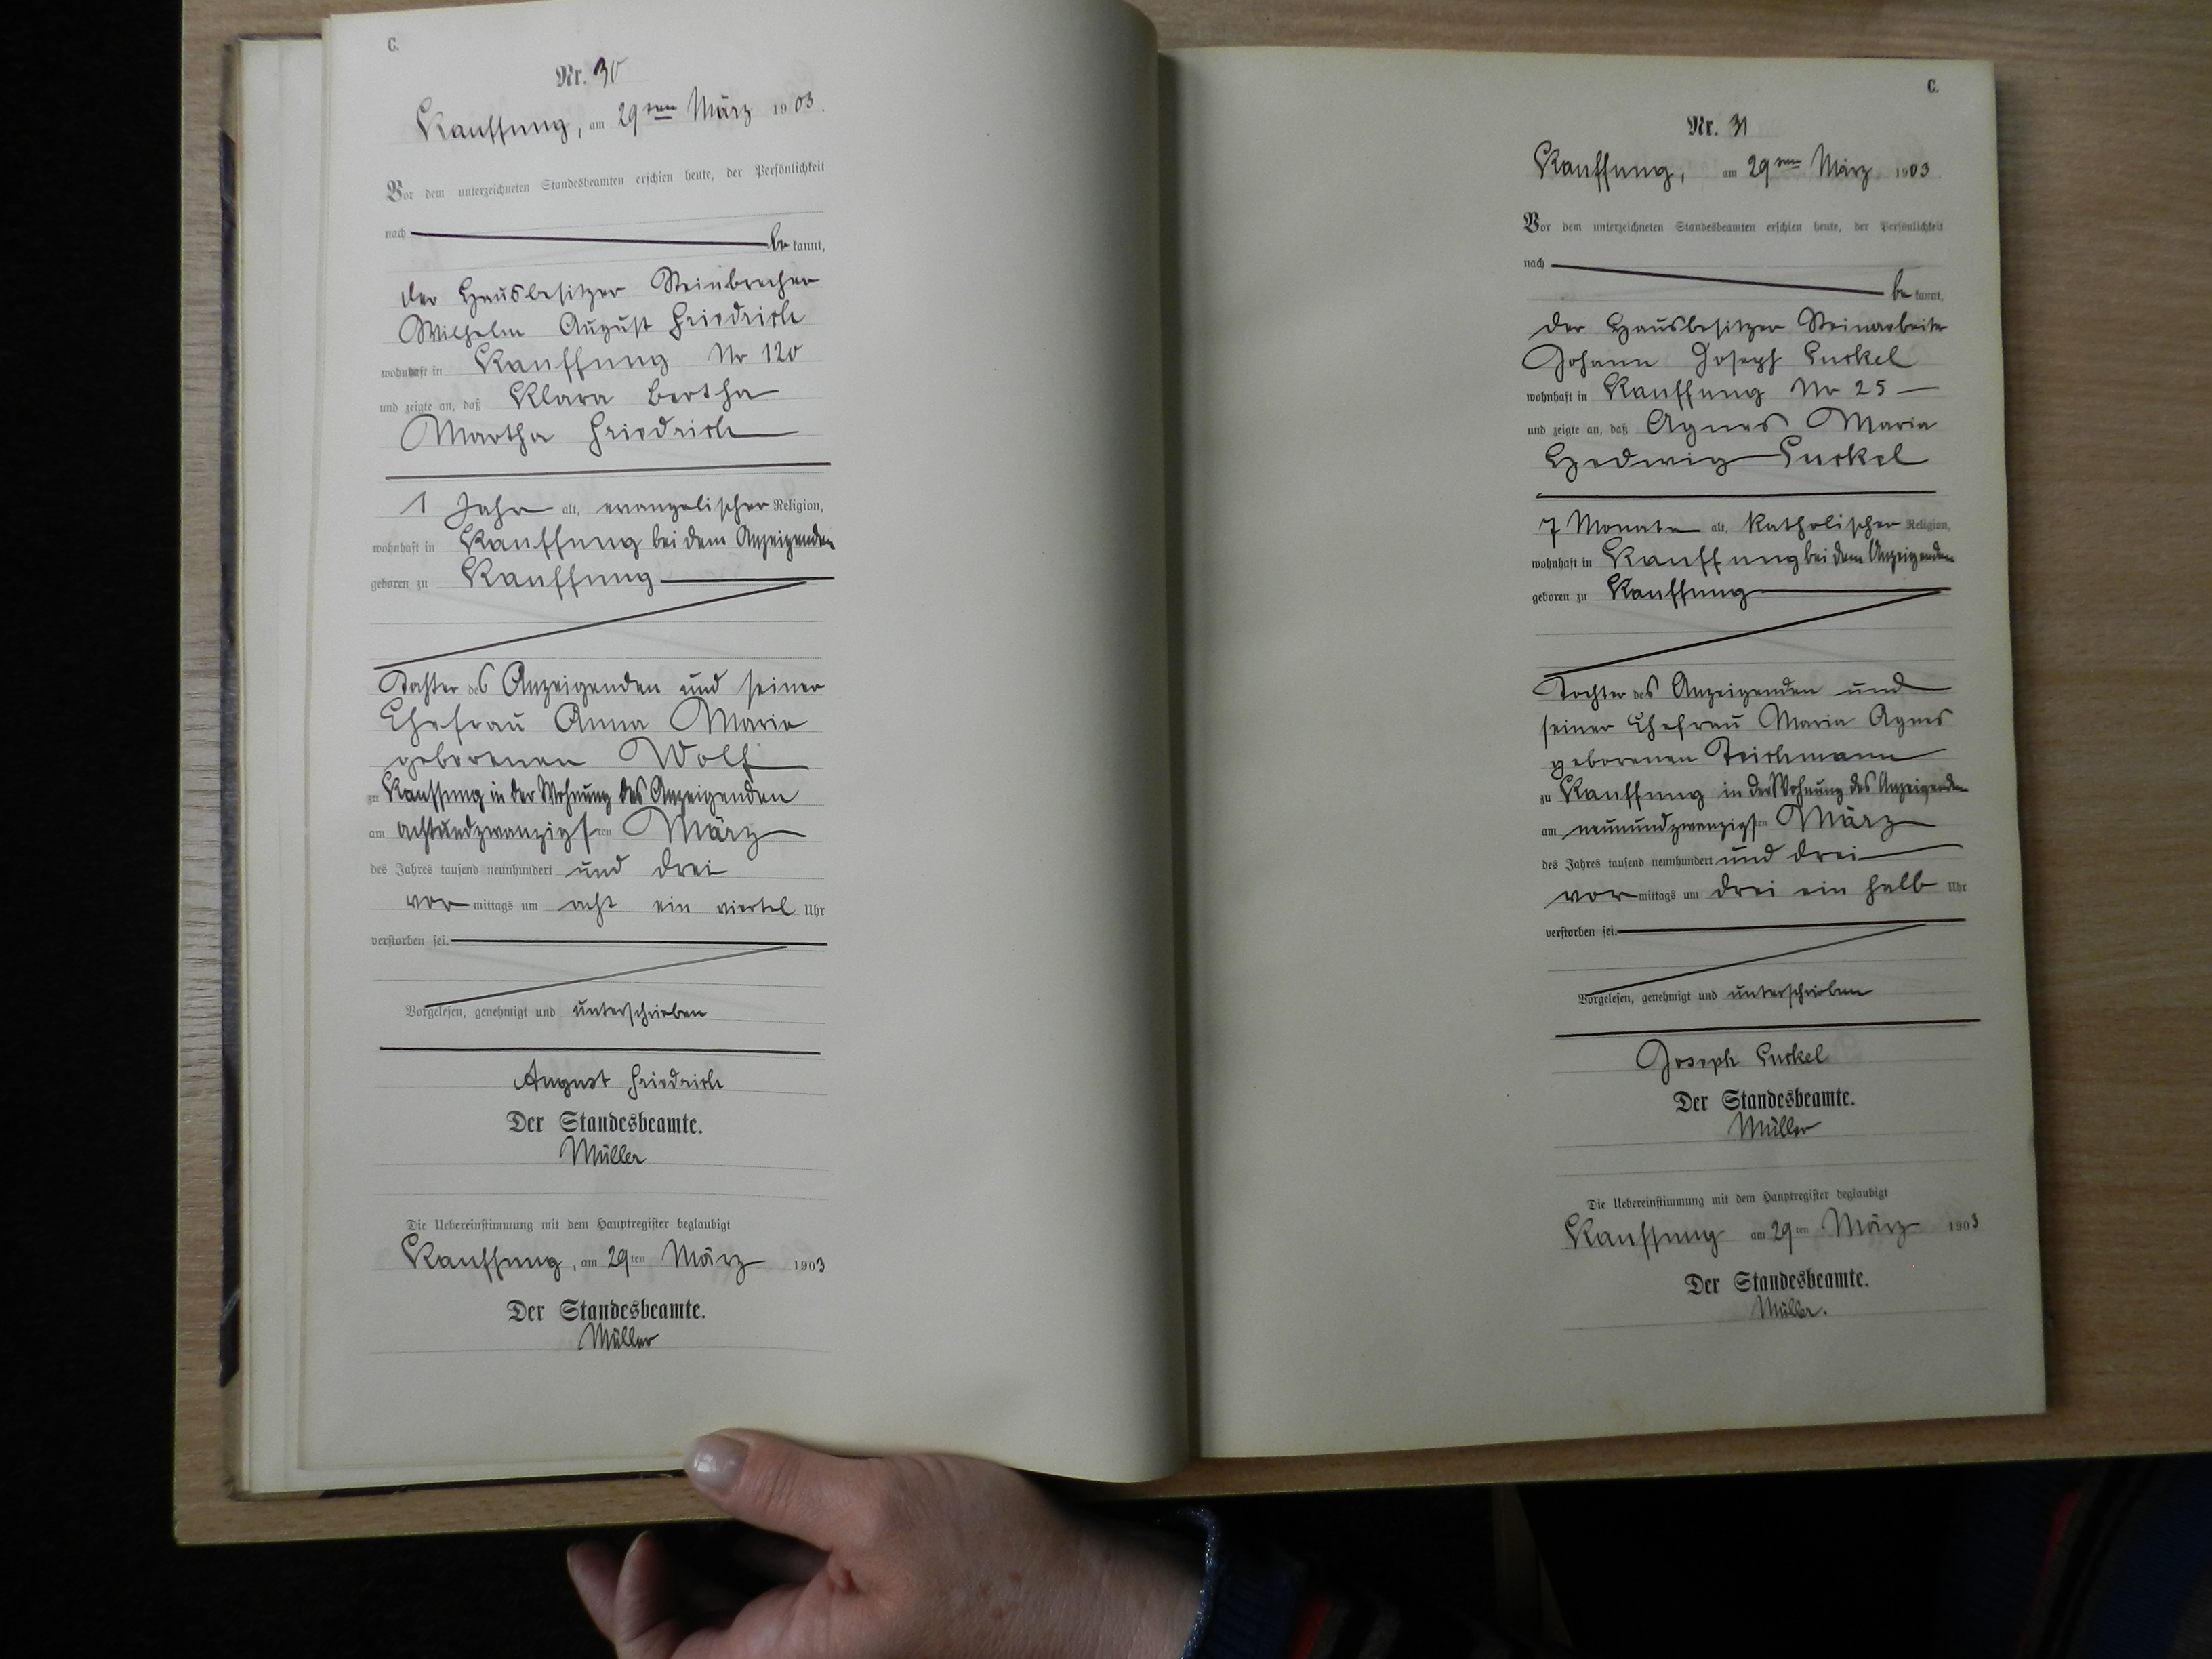 C.
Nr. 30
Kauffung, am 29ten März 1903.
Vor dem unterzeichneten Standesbeamten erschien heute, der Persönlichkeit
nach be kannt,
der Hausbesitzer Steinbrecher
Wilhelm August Friedrich
wohnhaft in Kauffung Nr 120
und zeigte an, daß Klara Bertha
Martha Friedrich
1 Jahr alt, evangelischer Religion,
wohnhaft in Kauffung bei dem Anzeigenden
geboren zu Kauffung
Tochter des Anzeigenden und seiner
Ehefrau Anna Maria
geborenen Wolf
zu Kauffung in der Wohnung des Anzeigenden
am achtundzwanzigsten März
des Jahres tausend neunhundert und drei
vor mittags um acht ein viertel Uhr
verstorben sei.
Vorgelesen, genehmigt und unterschrieben
August Friedrich
Der Standesbeamte.
Müller
Die Uebereinstimmung mit dem Hauptregister beglaubigt
Kauffung, am 29ten März 1903
Der Standesbeamte.
Müller
C.
Nr. 31
Kauffung, am 29ten März 1903.
Vor dem unterzeichneten Standesbeamten erschien heute, der Persönlichkeit
nach be kannt,
der Hausbesitzer Steinarbeiter
Johann Joseph
wohnhaft in Kauffung Nr 25
und zeigte an, daß Agnes Maria
Hedwig
7 Monate alt, katholischer Religion,
wohnhaft in Kauffung bei dem Anzeigenden
geboren zu Kauffung
Tochter des Anzeigenden und
seiner Ehefrau Maria Agnes
geborenen Teichmann
zu Kauffung in der Wohnung des Anzeigenden
am neunundzwanzigsten März
des Jahres tausend neunhundert und drei
vor mittags um drei ein halb Uhr
verstorben sei.
Vorgelesen, genehmigt und unterschrieben
Joseph
Der Standesbeamte.
Müller
Die Uebereinstimmung mit dem Hauptregister beglaubigt
Kauffung am 29ten März 1903
Der Standesbeamte.
Müller.